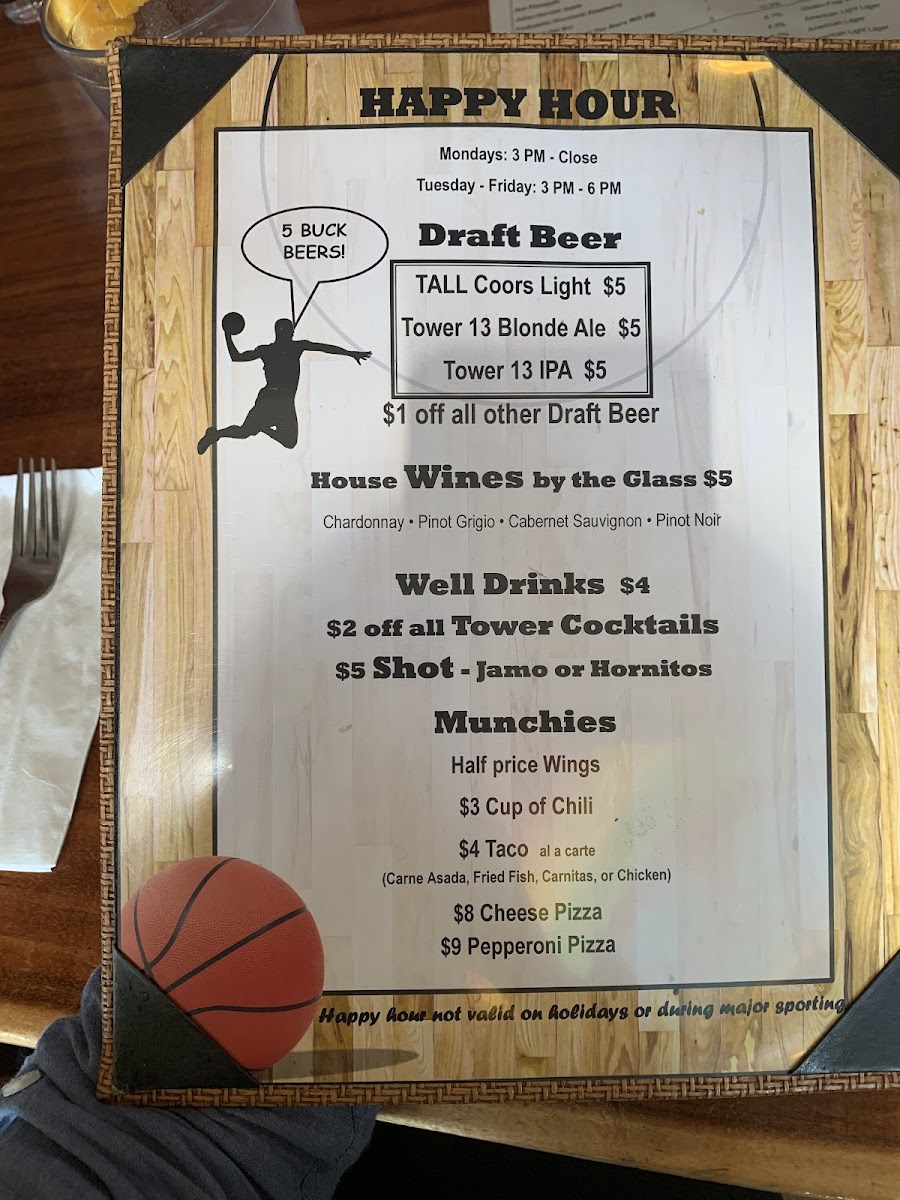 HAPPY HOUR
Mondays: 3 PM - Close
Tuesday - Friday: 3 PM - 6 PM
5 BUCK
BEERS!
Draft Beer
TALL Coors Light $5
Tower 13 Blonde Ale $5
Tower 13 IPA $5
$1 off all other Draft Beer
House Wines by the Glass $5
Chardonnay • Pinot Grigio • Cabernet Sauvignon • Pinot Noir
Well Drinks $4
$2 off all Tower Cocktails
$5 Shot - Jamo or Hornitos
Munchies
Half price Wings
$3 Cup of Chili
$4 Taco al a carte
(Carne Asada, Fried Fish, Carnitas, or Chicken)
$8 Cheese Pizza
$9 Pepperoni Pizza
Happy hour not valid on holidays or during major sporting